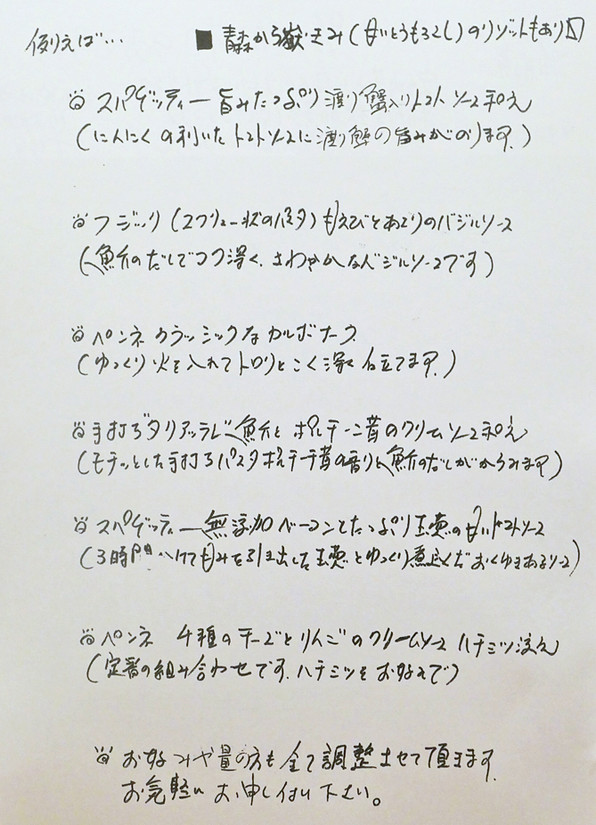 例えば… ■ 青森から嶽きみ(甘いとうもろこし)のリゾットもあり
スパゲッティー 旨みたっぷり渡り蟹入りトマトソース和え
(にんにくの利いたトマトソースに渡り蟹の旨みがのります。)
フジッリ (スクリュー状のパスタ) 甘えびとあさりのバジルソース
(魚介のだしでコク深く、さわやかなバジルソースです)
ペンネ クラッシックなカルボナーラ
(ゆっくり火を入れてトロリとこく深く仕立てます。)
手打ちタリアッテレ 魚介とポルチーニ茸のクリームソース和え
(モチッとした手打ちパスタ ポルチーニ茸の香りと魚介のだしがからみます)
スパゲッティー 無添加ベーコンとたっぷり玉葱の甘いトマトソース
(3時間かけて甘みを引き出した玉葱とゆっくり煮込んだおくゆきあるソース)
ペンネ 4種のチーズとりんごのクリームソース ハチミツ添え
(定番の組み合わせです。ハチミツをお好みで)
お好みや量の方も全て調整させて頂きます。
お気軽にお申し付け下さい。